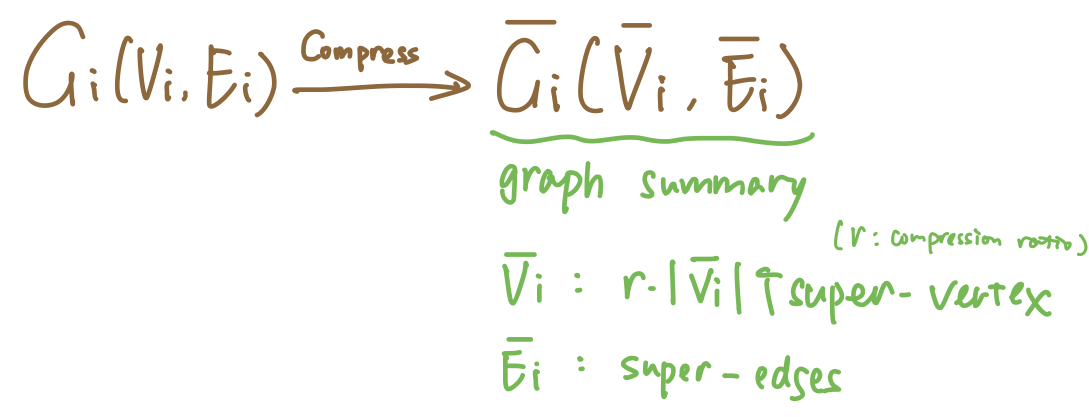 Gi(Vi, Ei) Compress → G̅i(V̅i, E̅i)
graph summary
(r: compression ratio)
V̅i : r·|V̅i| 개 super-vertex
E̅i : super-edges